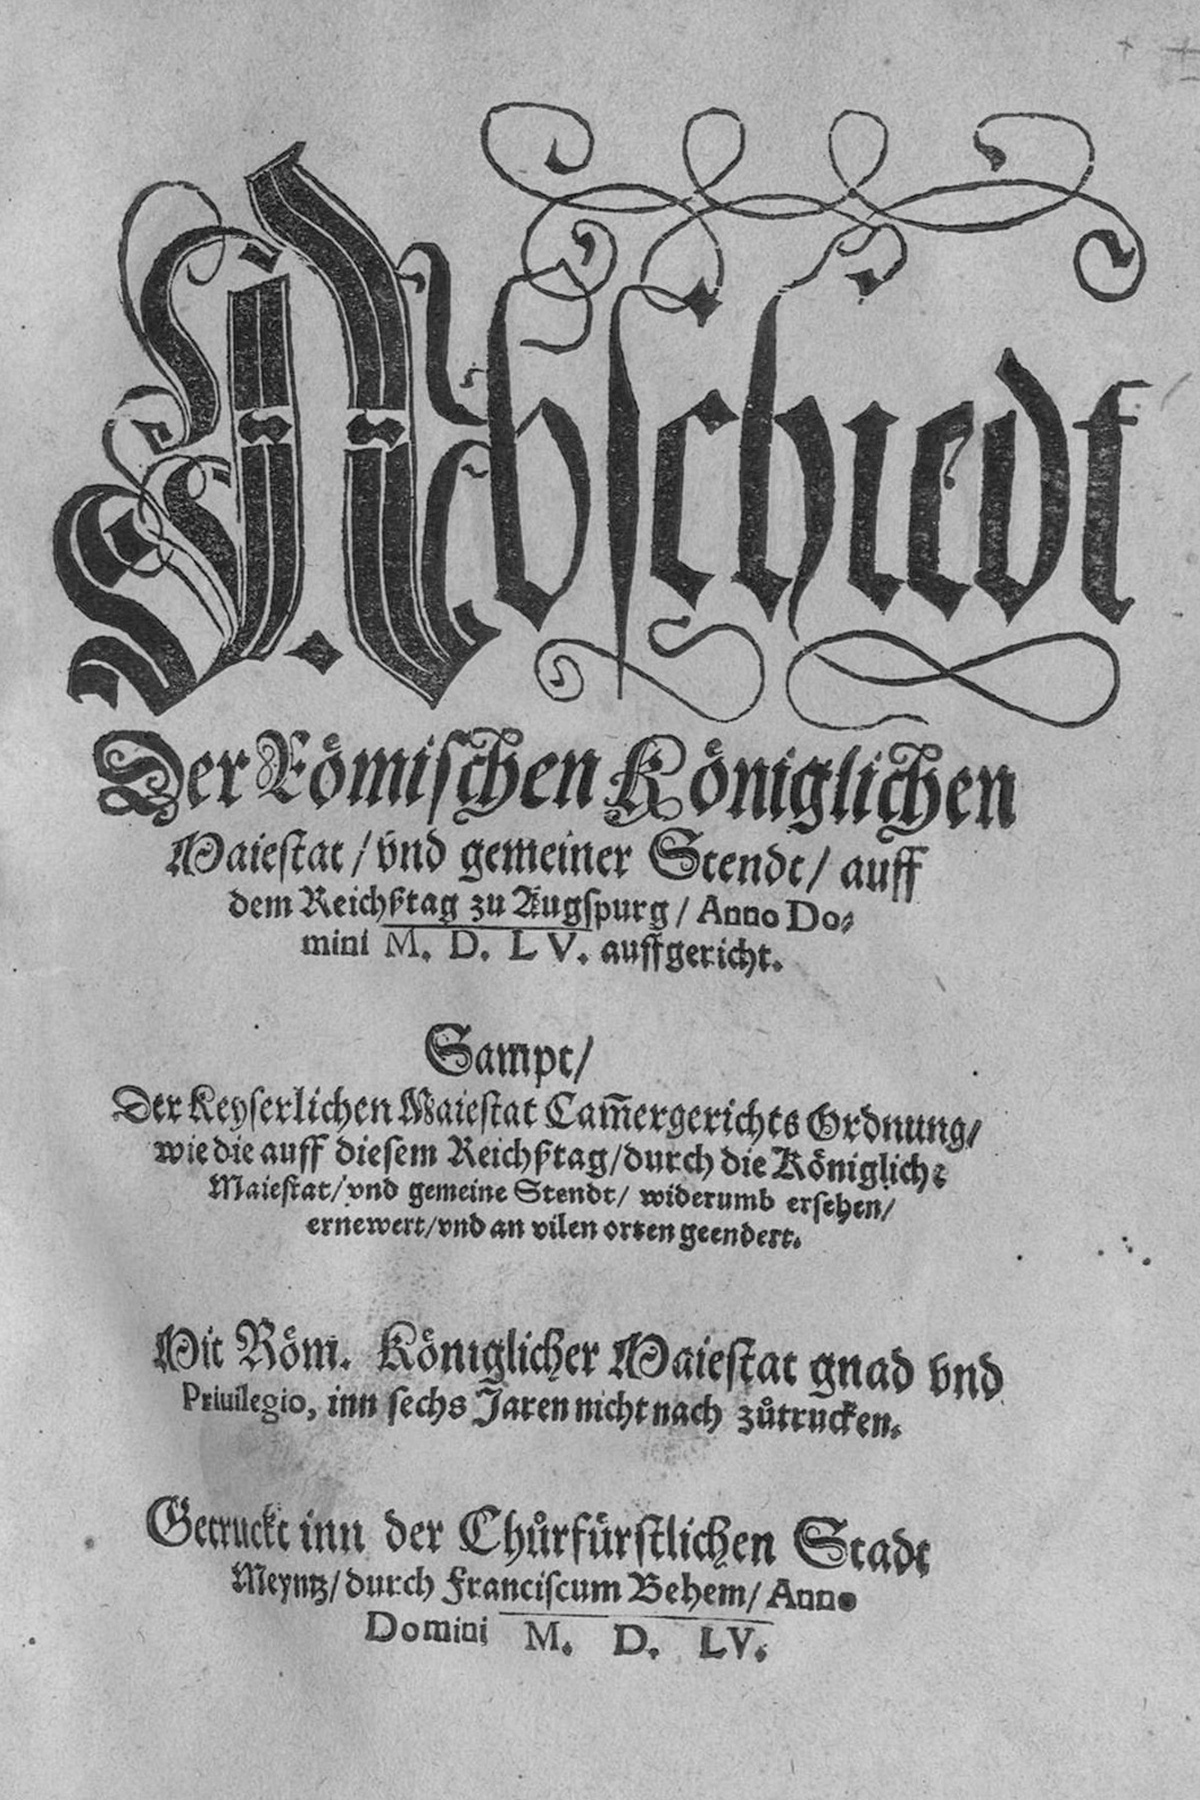 Abschiedt
Der Römischen Königlichen
Maiestat / vnd gemeiner Stendt / auff
dem Reichßtag zu Augspurg / Anno Do⸗
mini M. D. LV. auffgericht.
Sampt /
Der Keyserlichen Maiestat Cam̃ergerichts Ordnung /
wie die auff diesem Reichßtag / durch die Königliche
Maiestat / vnd gemeine Stendt / widerumb ersehen /
ernewert / vnd an vilen orten geendert.
Mit Röm. Königlicher Maiestat gnad vnd
Priuilegio, inn sechs Jaren nicht nach zůtrucken.
Getruckt inn der Chůrfürstlichen Stadt
Meyntz / durch Franciscum Behem / Anno
Domini M. D. LV.